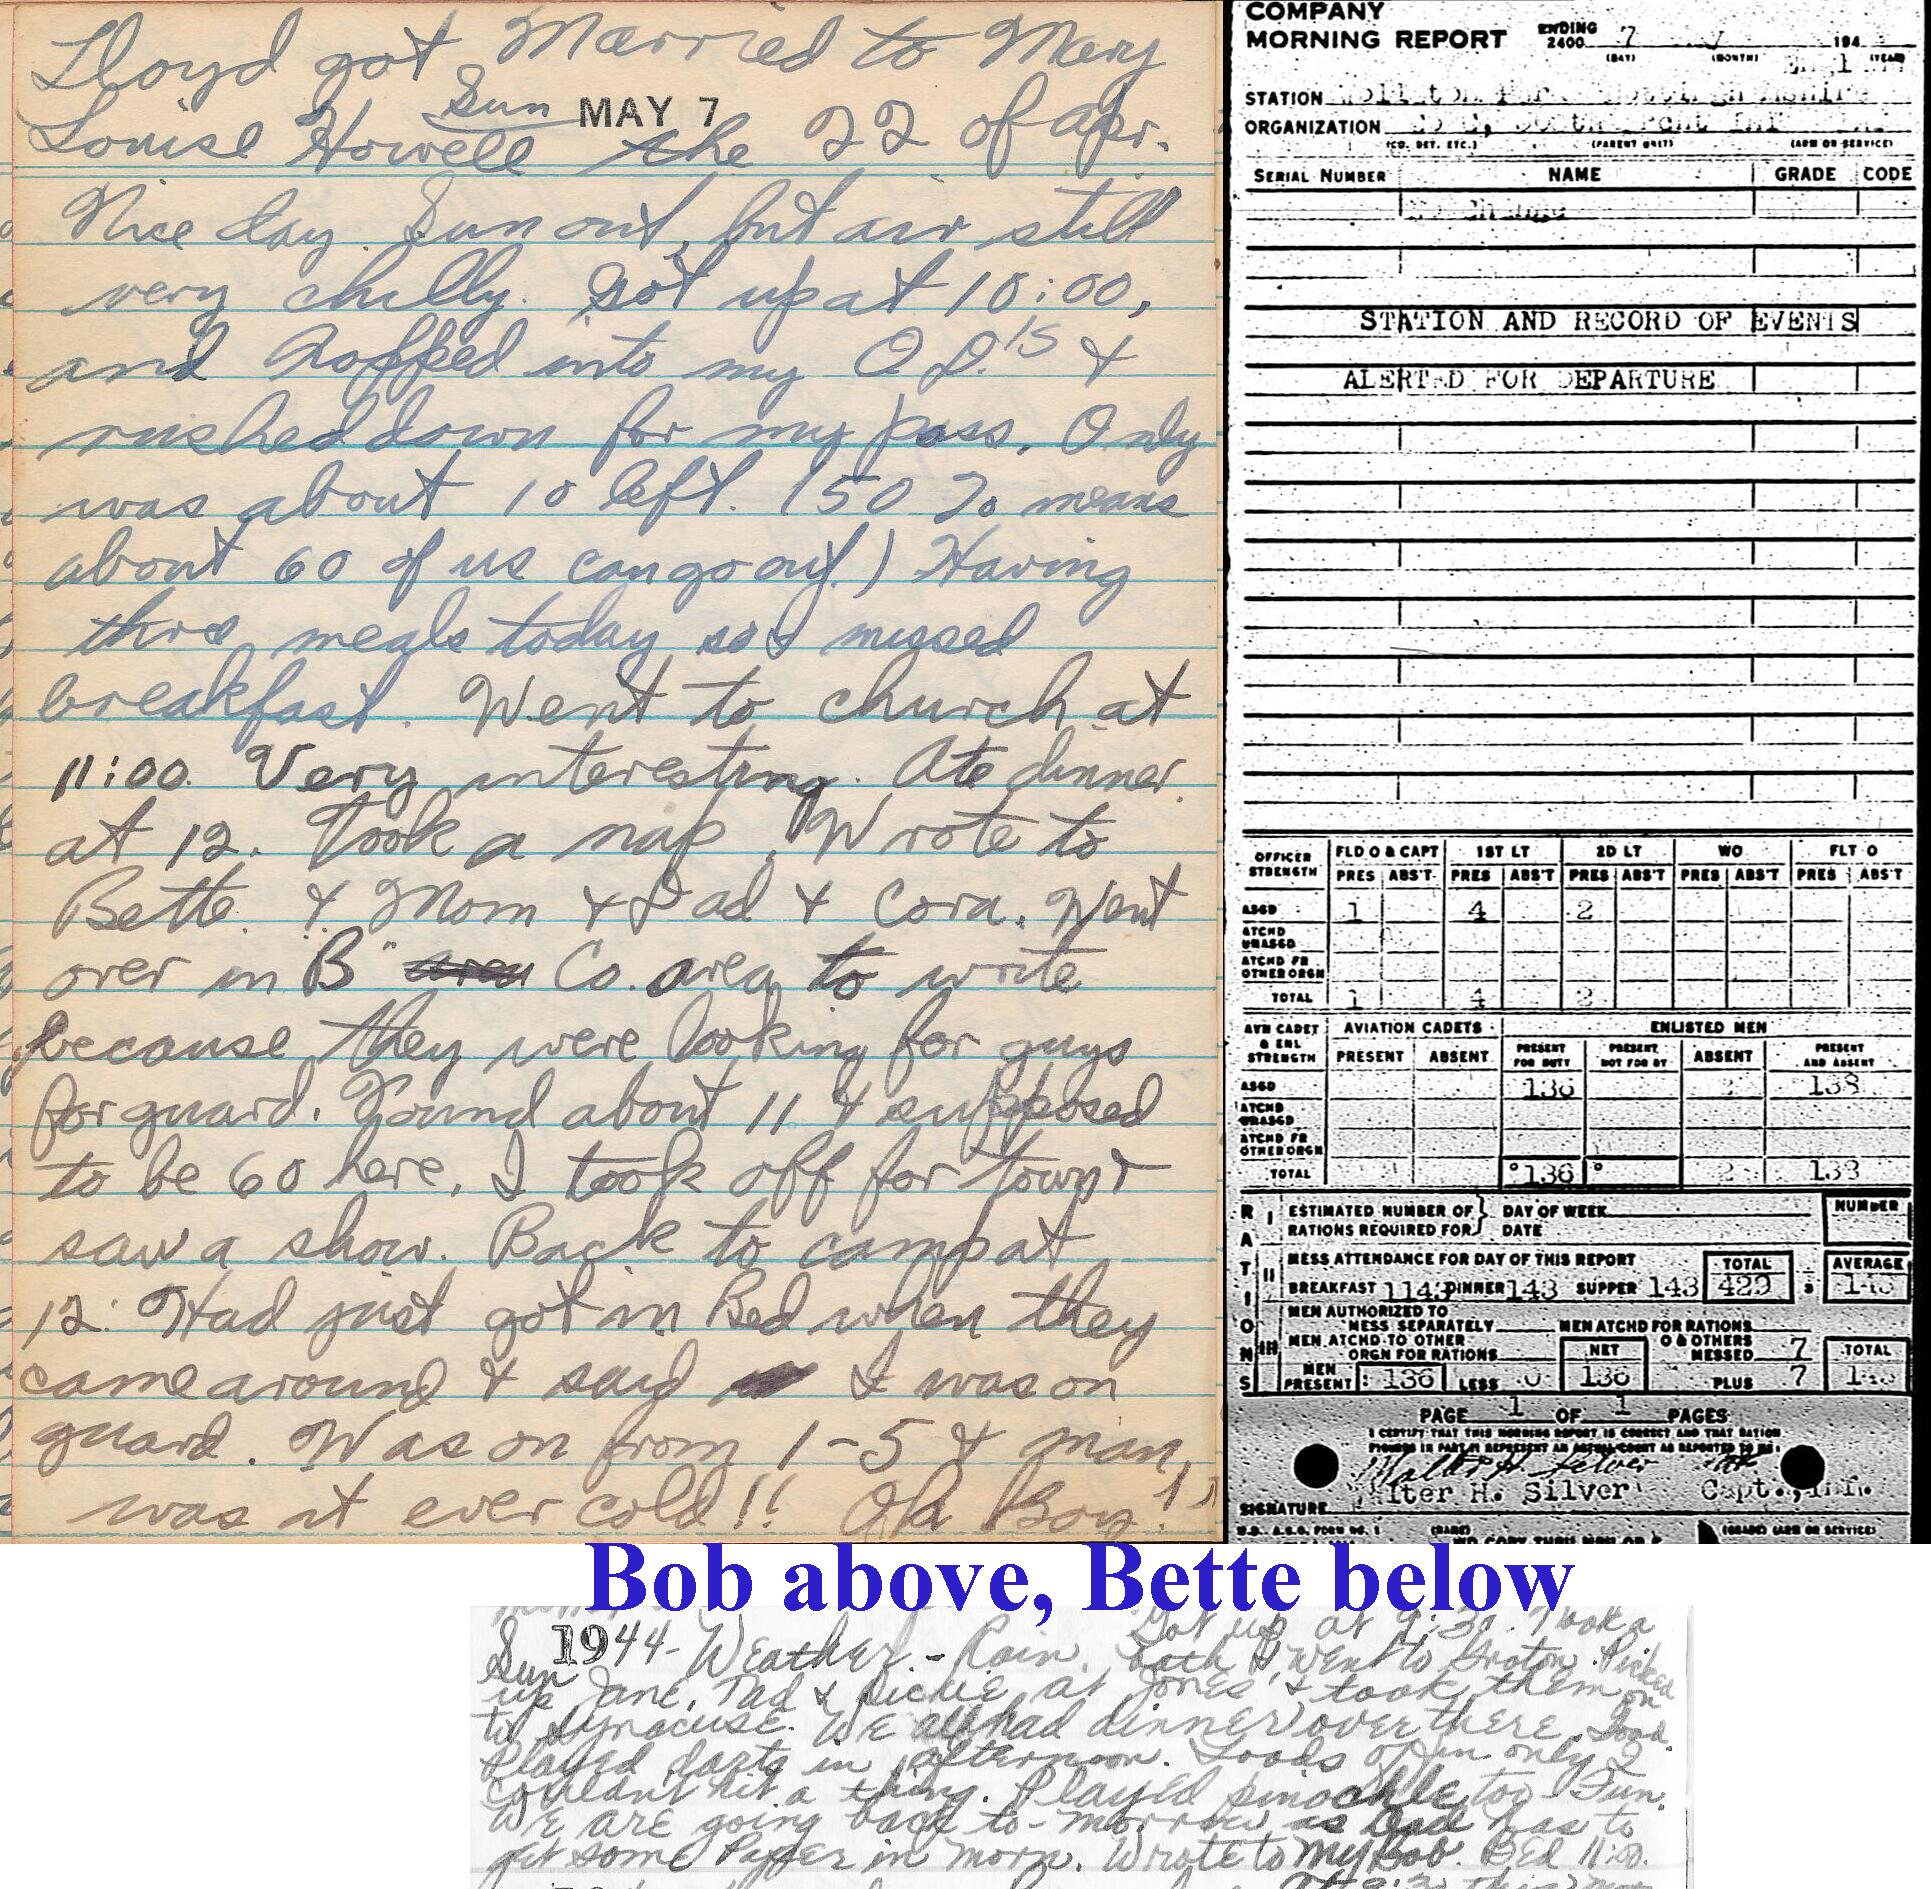 Lloyd got Married to Mary
Sun MAY 7
Louise Howell the 22 of Apr.
Nice day. Sun out, but air still
very chilly. Got up at 10:00,
and hopped into my O.D.'s &
rushed down for my pass. Only
was about 10 left. (50 % means
about 60 of us can go out.) Having
three meals today so I missed
breakfast. Went to church at
11:00. Very interesting. Ate dinner
at 12. Took a nap. Wrote to
Bette. & Mom & Dad & Cora. Went
over in "B" area Co. area to write
because they were looking for guys
for guard. Found about 11 & supposed
to be 60 here. I took off for town &
saw a show. Back to camp at
12. Had just got in Bed when they
came around & said I was on
guard. Was on from 1-5 & man,
was it ever cold!! Oh Boy!!
COMPANY
MORNING REPORT ENDING 2400 7 194
(DAY) (MONTH) (YEAR)
STATION
ORGANIZATION
(CO. DET. ETC.) (PARENT UNIT) (ARM OR SERVICE)
SERIAL NUMBER NAME GRADE CODE
STATION AND RECORD OF EVENTS
ALERTED FOR DEPARTURE
OFFICER STRENGTH FLD O & CAPT 1ST LT 2D LT WO FLT O
PRES ABS'T PRES ABS'T PRES ABS'T PRES ABS'T PRES ABS'T
ASGD 1 4 2
ATCHD UNASGD
ATCHD FR OTHER ORGN
TOTAL 1 4 2
AVN CADET & ENL STRENGTH AVIATION CADETS ENLISTED MEN
PRESENT ABSENT PRESENT FOR DUTY PRESENT NOT FOR DY ABSENT PRESENT AND ABSENT
ASGD 136 2 138
ATCHD UNASGD
ATCHD FR OTHER ORGN
TOTAL 136 2 138
RATIONS
I ESTIMATED NUMBER OF RATIONS REQUIRED FOR } DAY OF WEEK DATE NUMBER
II MESS ATTENDANCE FOR DAY OF THIS REPORT TOTAL AVERAGE
BREAKFAST 143 DINNER 143 SUPPER 143 429 3
III MEN AUTHORIZED TO MESS SEPARATELY MEN ATCHD FOR RATIONS
MEN ATCHD TO OTHER ORGN FOR RATIONS NET O & OTHERS MESSED 7 TOTAL
MEN PRESENT: 136 LESS 0 136 PLUS 7 143
PAGE 1 OF 1 PAGES
I CERTIFY THAT THIS MORNING REPORT IS CORRECT AND THAT RATION
FIGURES IN PART III REPRESENT AN ACTUAL COUNT AS REPORTED TO ME:
Walter H. Silver
SIGNATURE Walter H. Silver Capt., Inf.
W.D., A.G.O. FORM NO. 1 (NAME) (GRADE) (ARM OR SERVICE)
Bob above, Bette below
Got up at 9:30. Took a
Sun 1944 - Weather - Rain. bath & went to Groton. Picked
up Jane, Tad & Dickie at Jones' & took them on
to Syracuse. We all had dinner over there. Good.
Played darts in afternoon. Loads of fun only I
couldn't hit a thing. Played pinochle too. Fun.
We are going back to-morrow as Dad has to
get some Paper in morn. Wrote to My Bob. Bed 11:00.